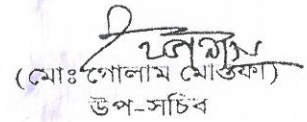 (মোঃ গোলাম মোস্তফা)
উপ-সচিব